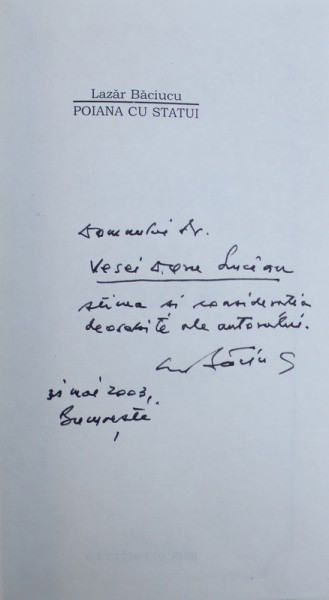 Lazăr Băciucu
POIANA CU STATUI
Domnului Dr.
Vesei Doru Lucian
stima și considerația
deosebite ale autorului.
31 mai 2003,
București